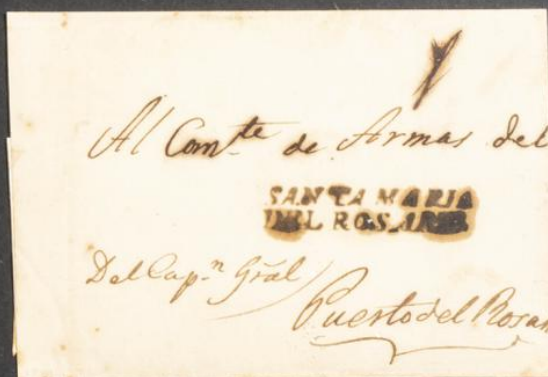 Al Com.te de Armas del
SANTA MARIA
DEL ROSARIO.
Del Cap.n Gral
Puerto del Rosar